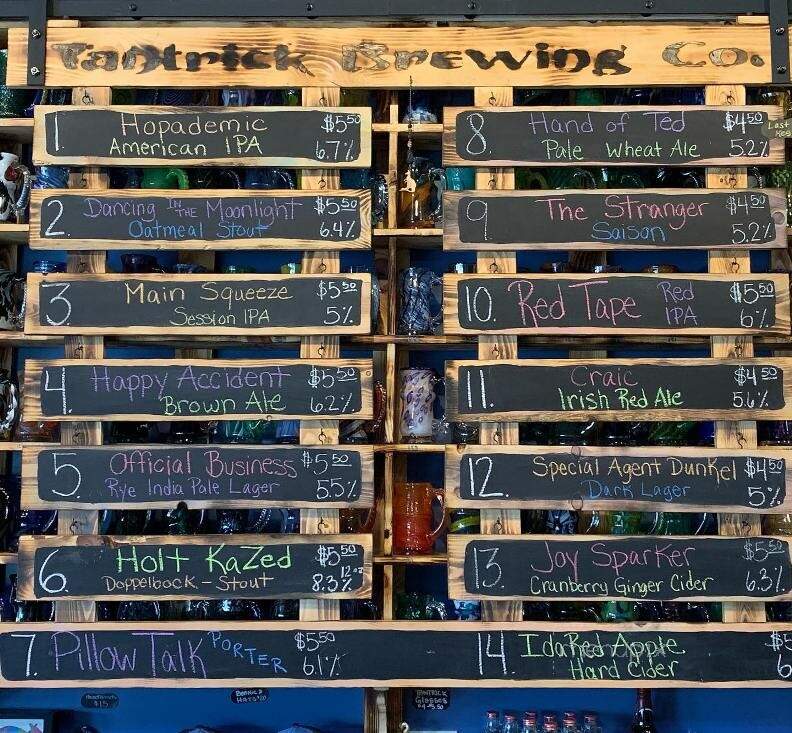 Tantrick Brewing Co.
1. Hopademic $5.50
American IPA 6.7%
2. Dancing IN THE Moonlight $5.50
Oatmeal Stout 6.4%
3. Main Squeeze $5.50
Session IPA 5%
4. Happy Accident $5.50
Brown Ale 6.2%
5. Official Business $5.50
Rye India Pale Lager 5.5%
6. Holt KaZed $5.50
12oz
Doppelbock - Stout 8.3%
7. Pillow Talk PORTER $5.50
6.1%
8. Hand of Ted $4.50
Last Keg
Pale Wheat Ale 5.2%
9. The Stranger $4.50
Saison 5.2%
10. Red Tape Red IPA $5.50
6%
11. Craic $4.50
Irish Red Ale 5.6%
12. Special Agent Dunkel $4.50
Dark Lager 5%
13. Joy Sparker $5.50
Cranberry Ginger Cider 6.3%
14. IdaRed Apple $5
Hard Cider 6
TANTRICK
GLASSES